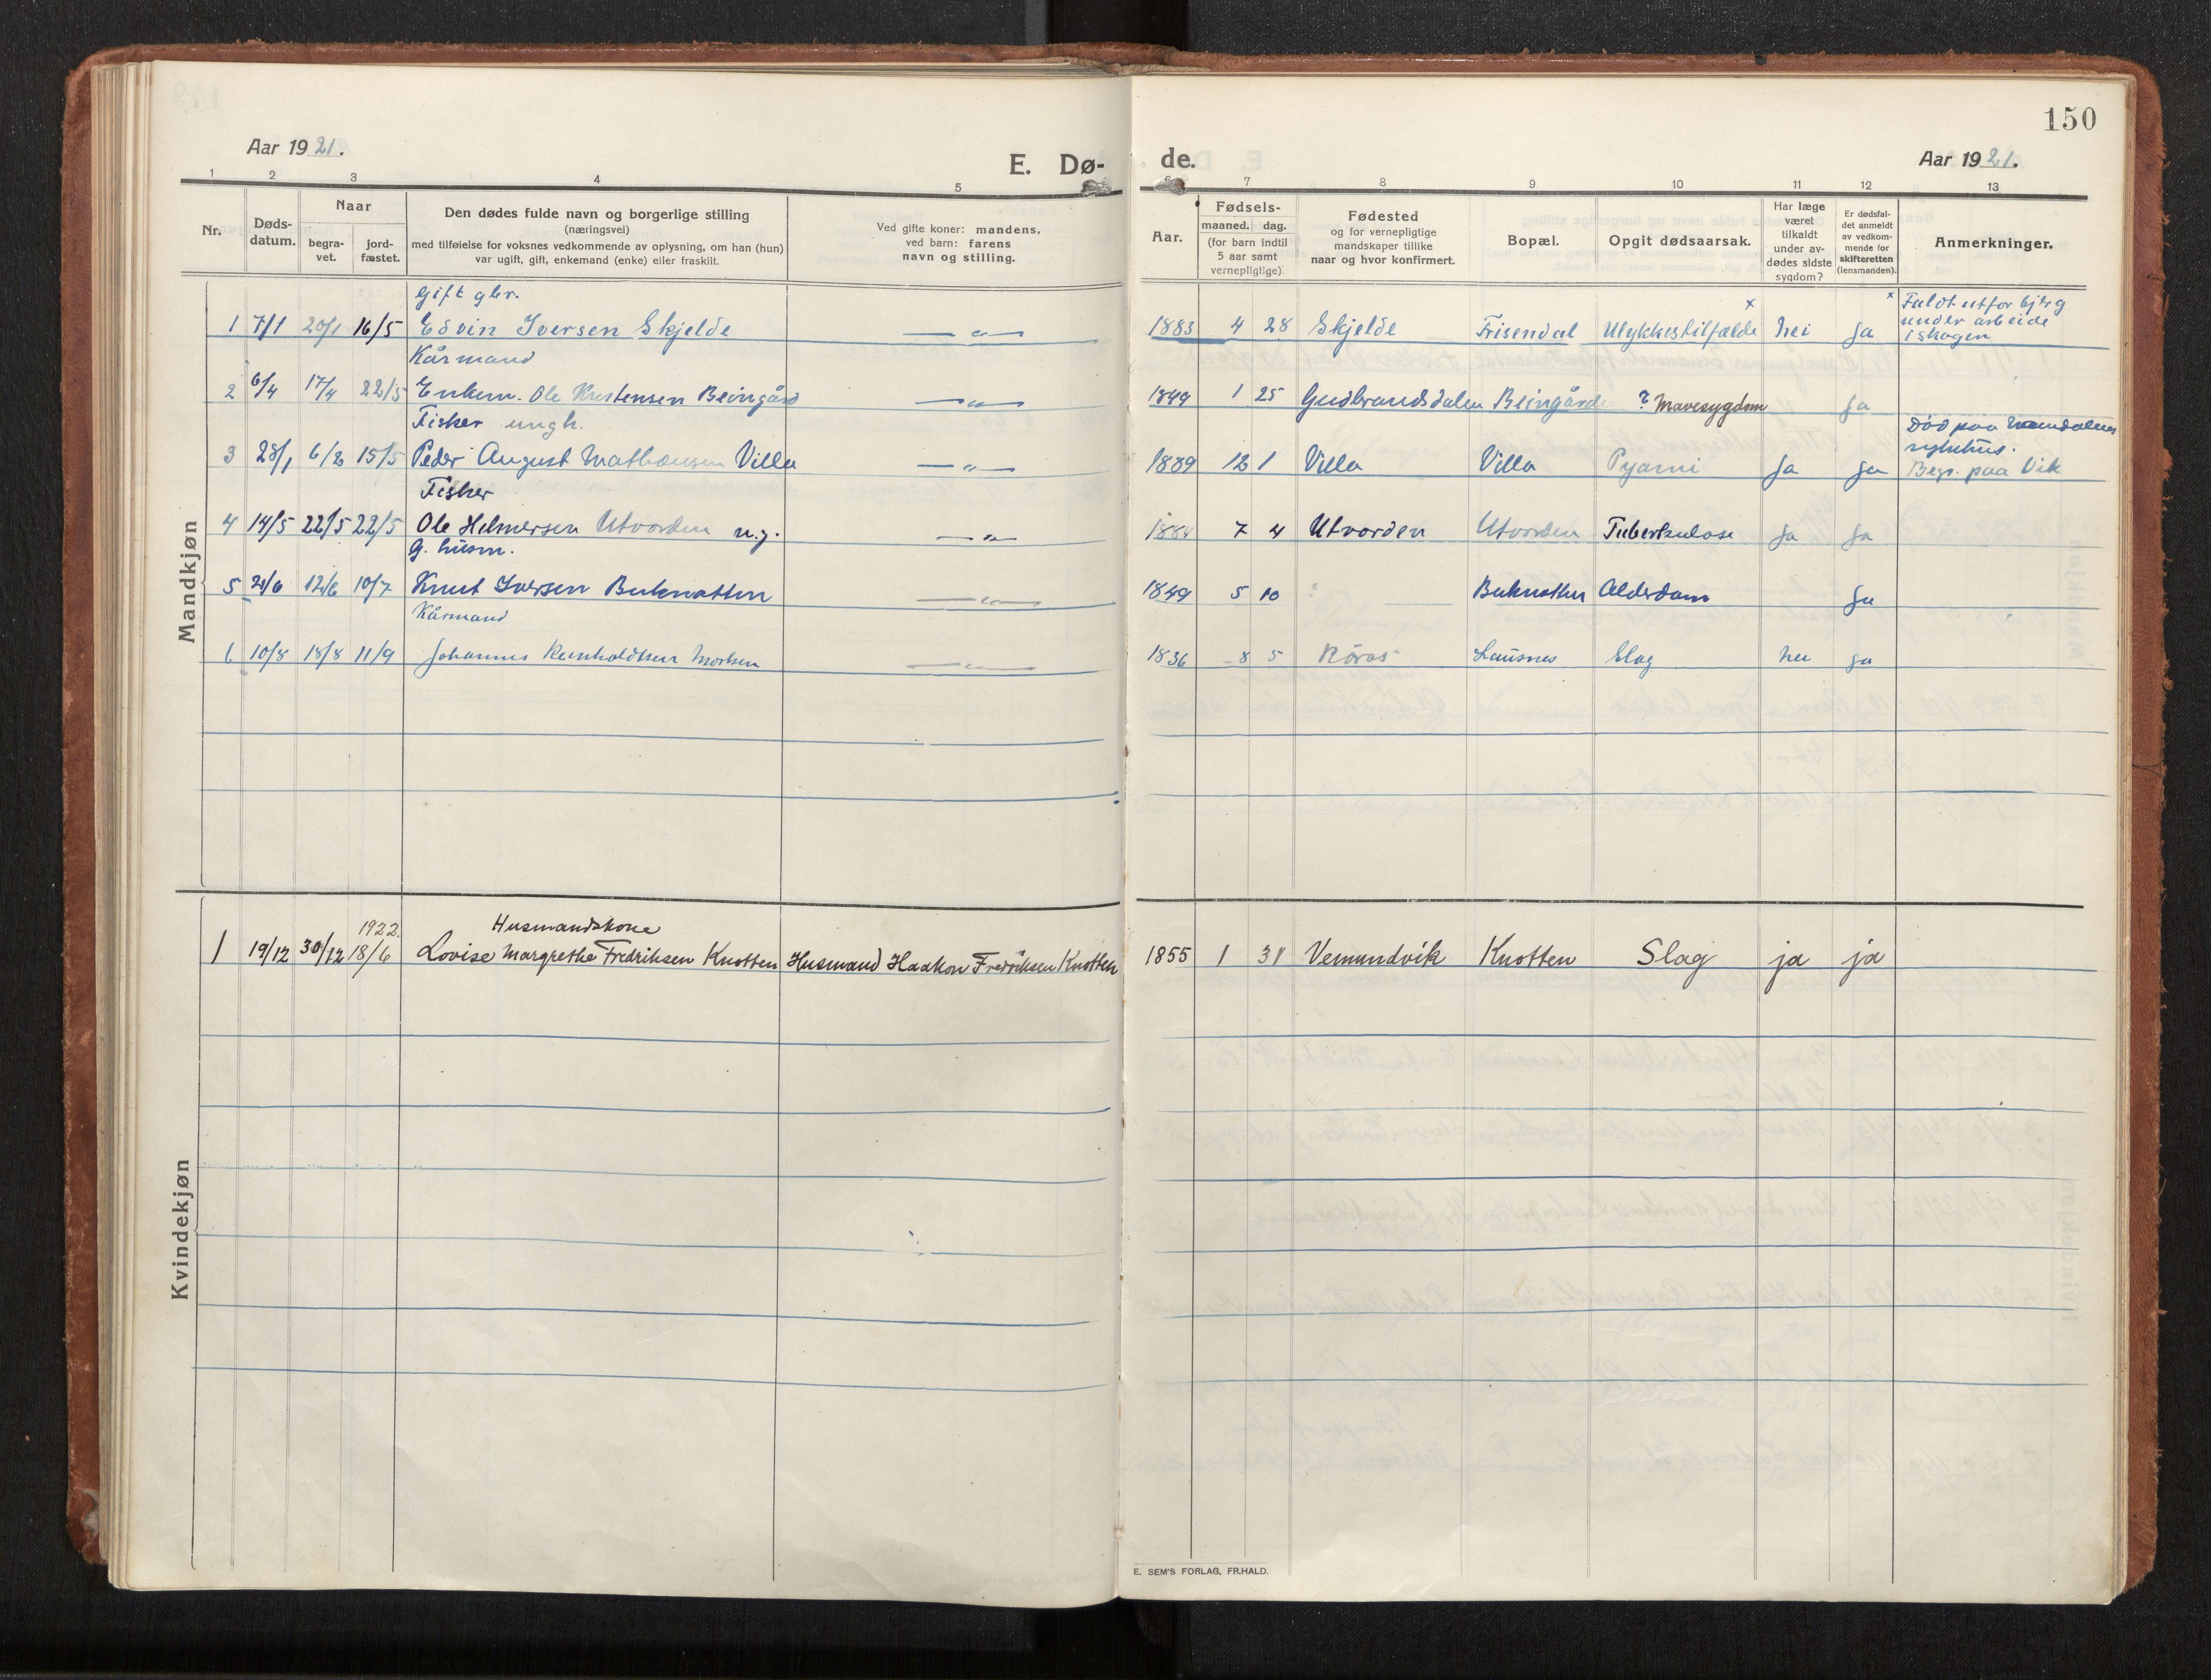 150
Aar 1921.
E. Dø-
de.
Aar 1921.
1 2 3 4 5
6 7 8 9 10 11 12 13
Nr.
Døds-
datum.
Naar
begra-
vet.
jord-
fæstet.
Den dødes fulde navn og borgerlige stilling
(næringsvei)
med tilføielse for voksnes vedkommende av oplysning, om han (hun)
var ugift, gift, enkemand (enke) eller fraskilt.
Ved gifte koner: mandens,
ved barn: farens
navn og stilling.
Aar.
Fødsels-
maaned. dag.
(for barn indtil
5 aar samt
vernepligtige).
Fødested
og for vernepligtige
mandskaper tillike
naar og hvor konfirmert.
Bopæl.
Opgit dødsaarsak.
Har læge
været
tilkaldt
under av-
dødes sidste
sygdom?
Er dødsfal-
det anmeldt
av vedkom-
mende for
skifteretten
(lensmanden).
Anmerkninger.
Mandkjøn
Gift gbr.
1 7/1 20/1 16/5 Edvin Iversen Skjelde — " — 1883 4 28 Skjelde Frisendal Ulykkestilfælde x nei ja
x Faldt utfor bjerg
under arbeide
i skogen
Kårmand
2 6/4 17/4 22/5 Enkem. Ole Kristensen Beingård — " — 1849 1 25 Gudbrandsdalen Beingård ? Mavesygdom ja
Fisker ungk.
3 28/1 6/2 15/5 Peder August Mathæusen Villa — " — 1889 12 1 Villa Villa Pyæmi ja ja
Død paa Namdalens
sykehus.
Begr. paa Vik
Fisker
4 14/5 22/5 22/5 Ole Helmersen Utvorden u.g. — " — 1884 7 4 Utvorden Utvorden Tuberkulose ja ja
g. husm.
5 2/6 12/6 10/7 Knut Iversen Buknotten — " — 1849 5 10 Buknotten Alderdom ja
Kårmand
6 10/8 18/8 11/9 Johannes Reinholdtsen Morken — " — 1836 8 5 Röros Lausnes Slag nei ja
Kvindekjøn
1922.
Husmandskone
1 19/12 30/12 18/6 Lovise Margrethe Fredriksen Knotten Husmand Haakon Fredriksen Knotten 1855 1 31 Vemundvik Knotten Slag ja ja
E. SEM'S FORLAG, FR.HALD.